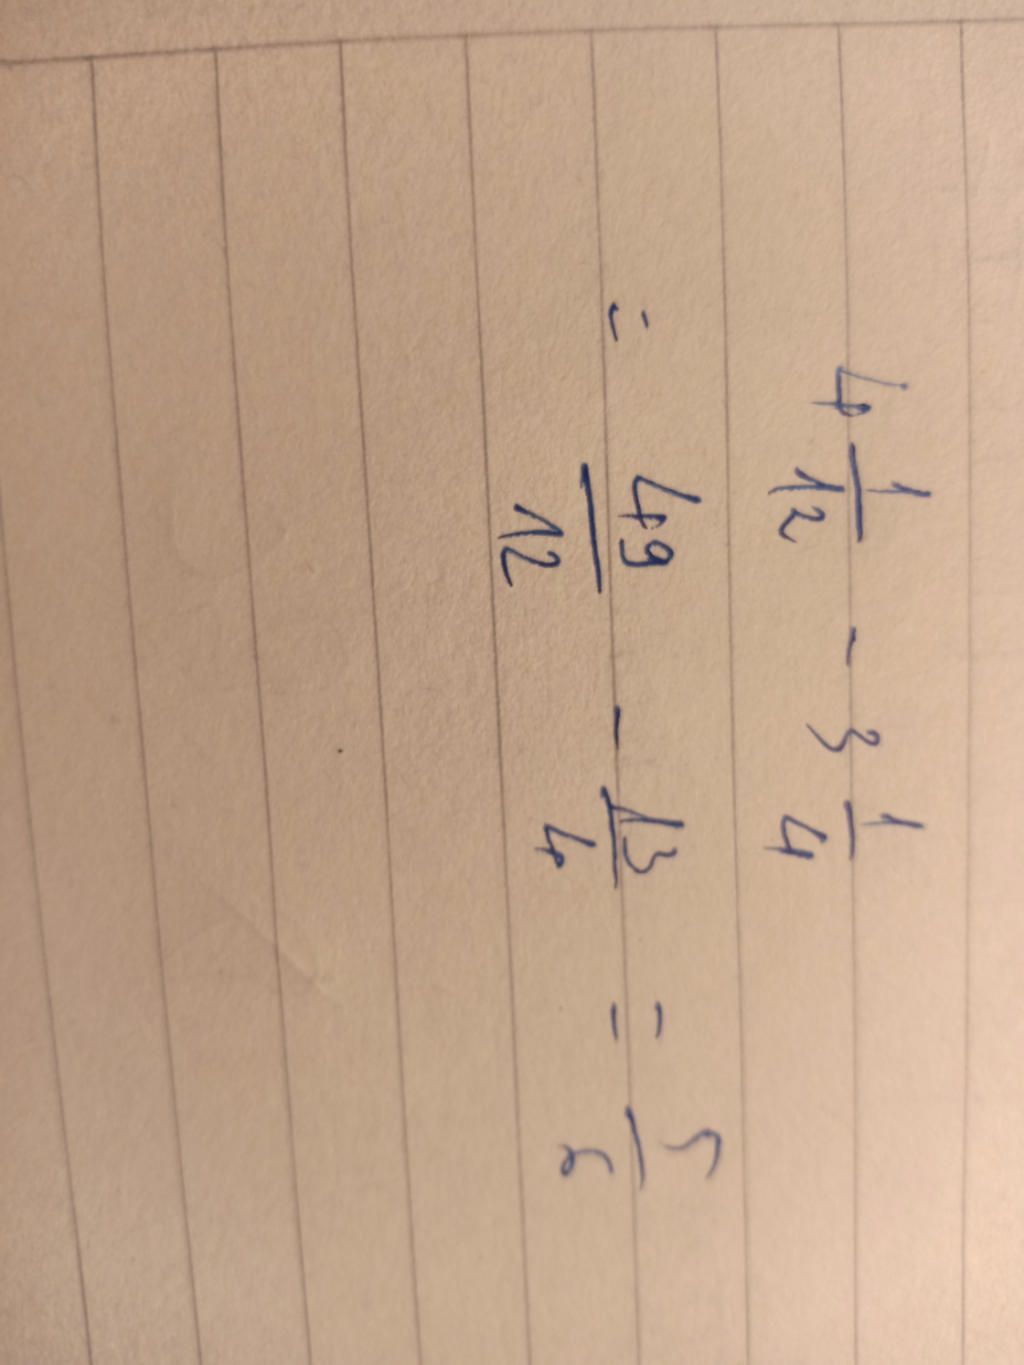 4 1/12 - 3 1/4
= 49/12 - 13/4 = 5/6